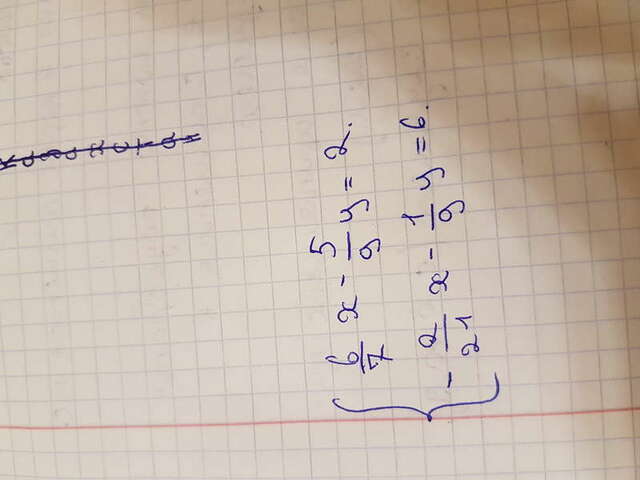 6/7 x - 5/9 y = 2.
- 2/21 x - 1/9 y = 6.